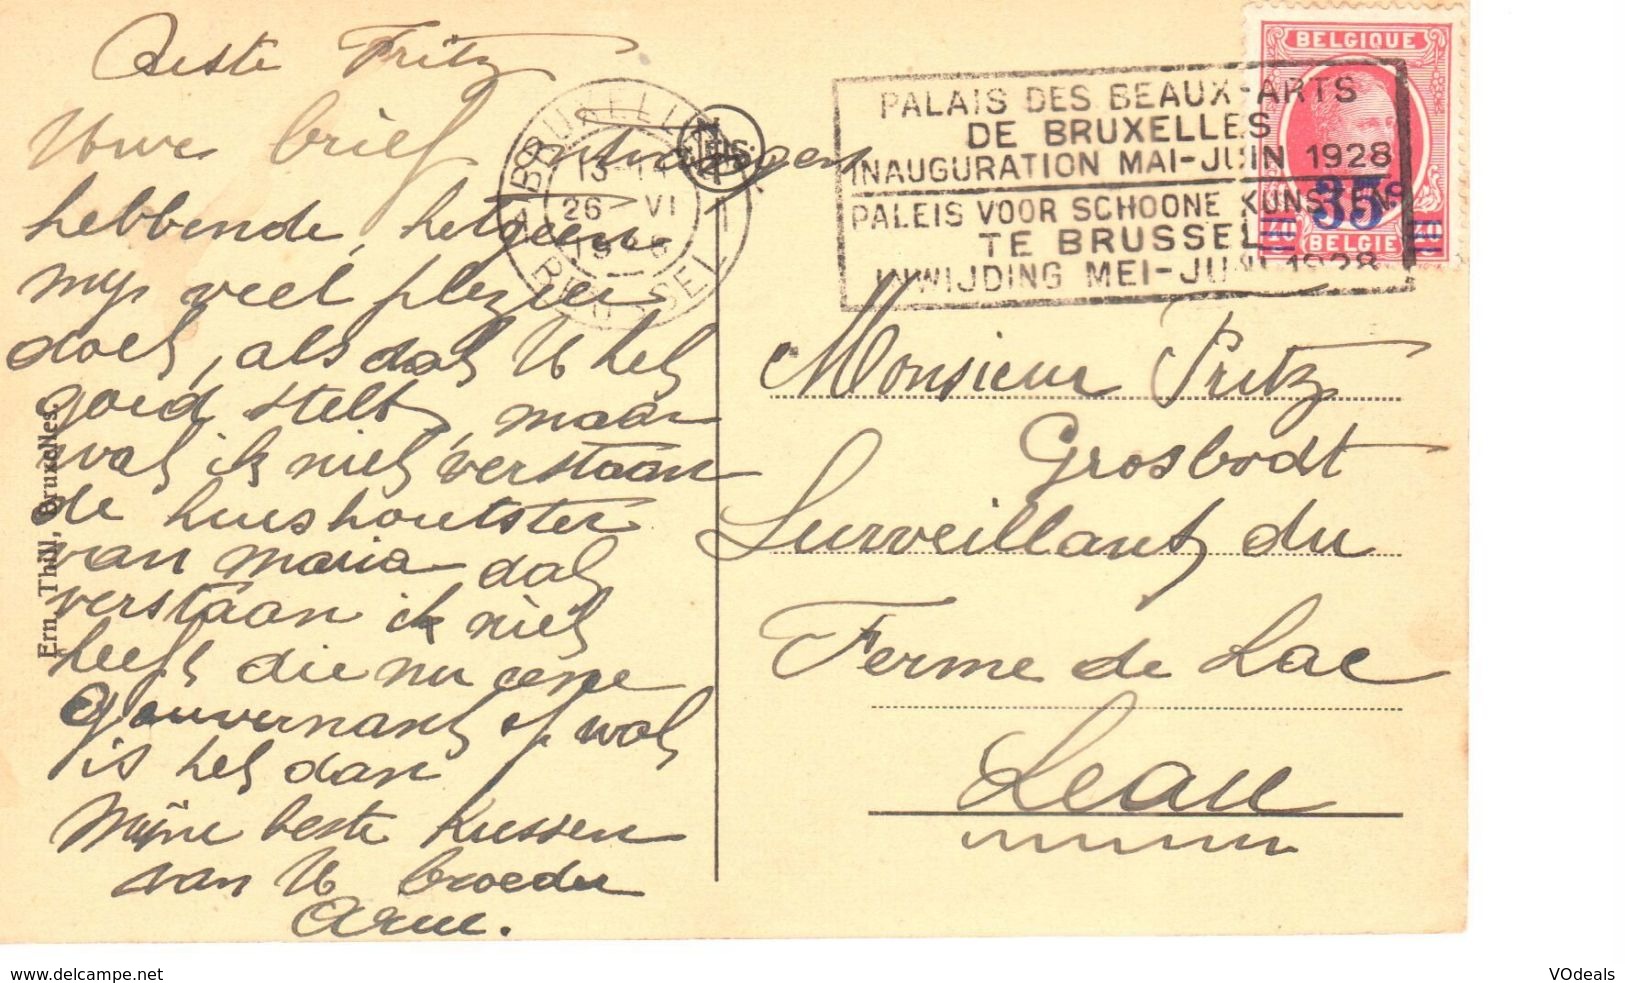 Beste Fritz
Uwe brief ontvangen
hebbende, hetgeen
mijn veel plezier
doet, als dat U het
goed stelt, maar
wat ik niet verstaan
de huishoutster
van maria dat
verstaan ik niet
heeft die nu eene
gouvernant of wat
is het dan
Mijne beste kussen
van U broeder
BRUXELLES
13-14
26 VI
1928
BRUSSEL
NELS
PALAIS DES BEAUX-ARTS
DE BRUXELLES
INAUGURATION MAI-JUIN 1928
PALEIS VOOR SCHOONE KUNSTEN
TE BRUSSEL
INWIJDING MEI-JUNI 1928
BELGIQUE
35
40 BELGIE 40
Monsieur Fritz
Grosbodt
Surveillant du
Ferme de Lac
Leau
Ern. Thill, Bruxelles.
www.delcampe.net
VOdeals